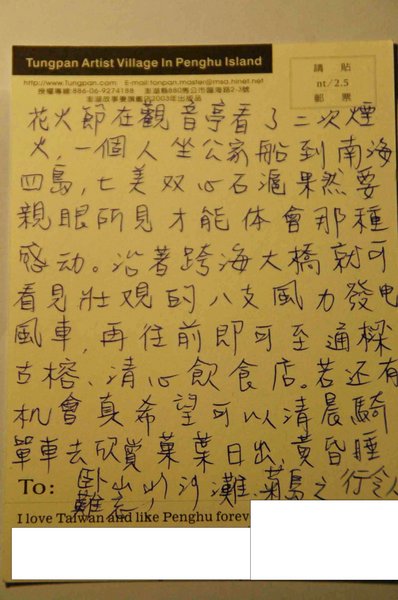 Tungpan Artist Village In Penghu Island
http://www.Tungpan.com E-mail:tonpan.master@msa.hinet.net
授權專線:886-06-9274188 澎湖縣880馬公市臨海路2-3號
澎湖故事妻旗艦店2003年出版品
請 貼
nt/2.5
郵 票
花火節在觀音亭看了二次煙
火,一個人坐公家船到南海
四島,七美双心石滬果然要
親眼所見才能体會那種
感动。沿著跨海大橋就可
看見壯观的八支風力發电
風車,再往前即可至通樑
古榕、清心飲食店。若还有
机會真希望可以清晨騎
單車去欣赏菓葉日出,黃昏睡
To: 卧山水沙灘,菊島之行令人
難忘!
I love Taiwan and like Penghu forev